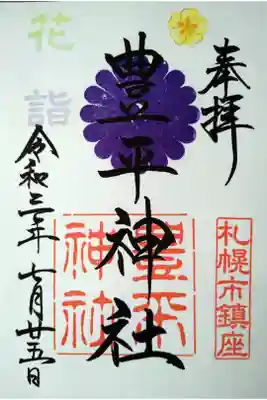 奉拝
札幌市鎮座
豊平神社
豊平神社
花詣
令和三年七月廿五日